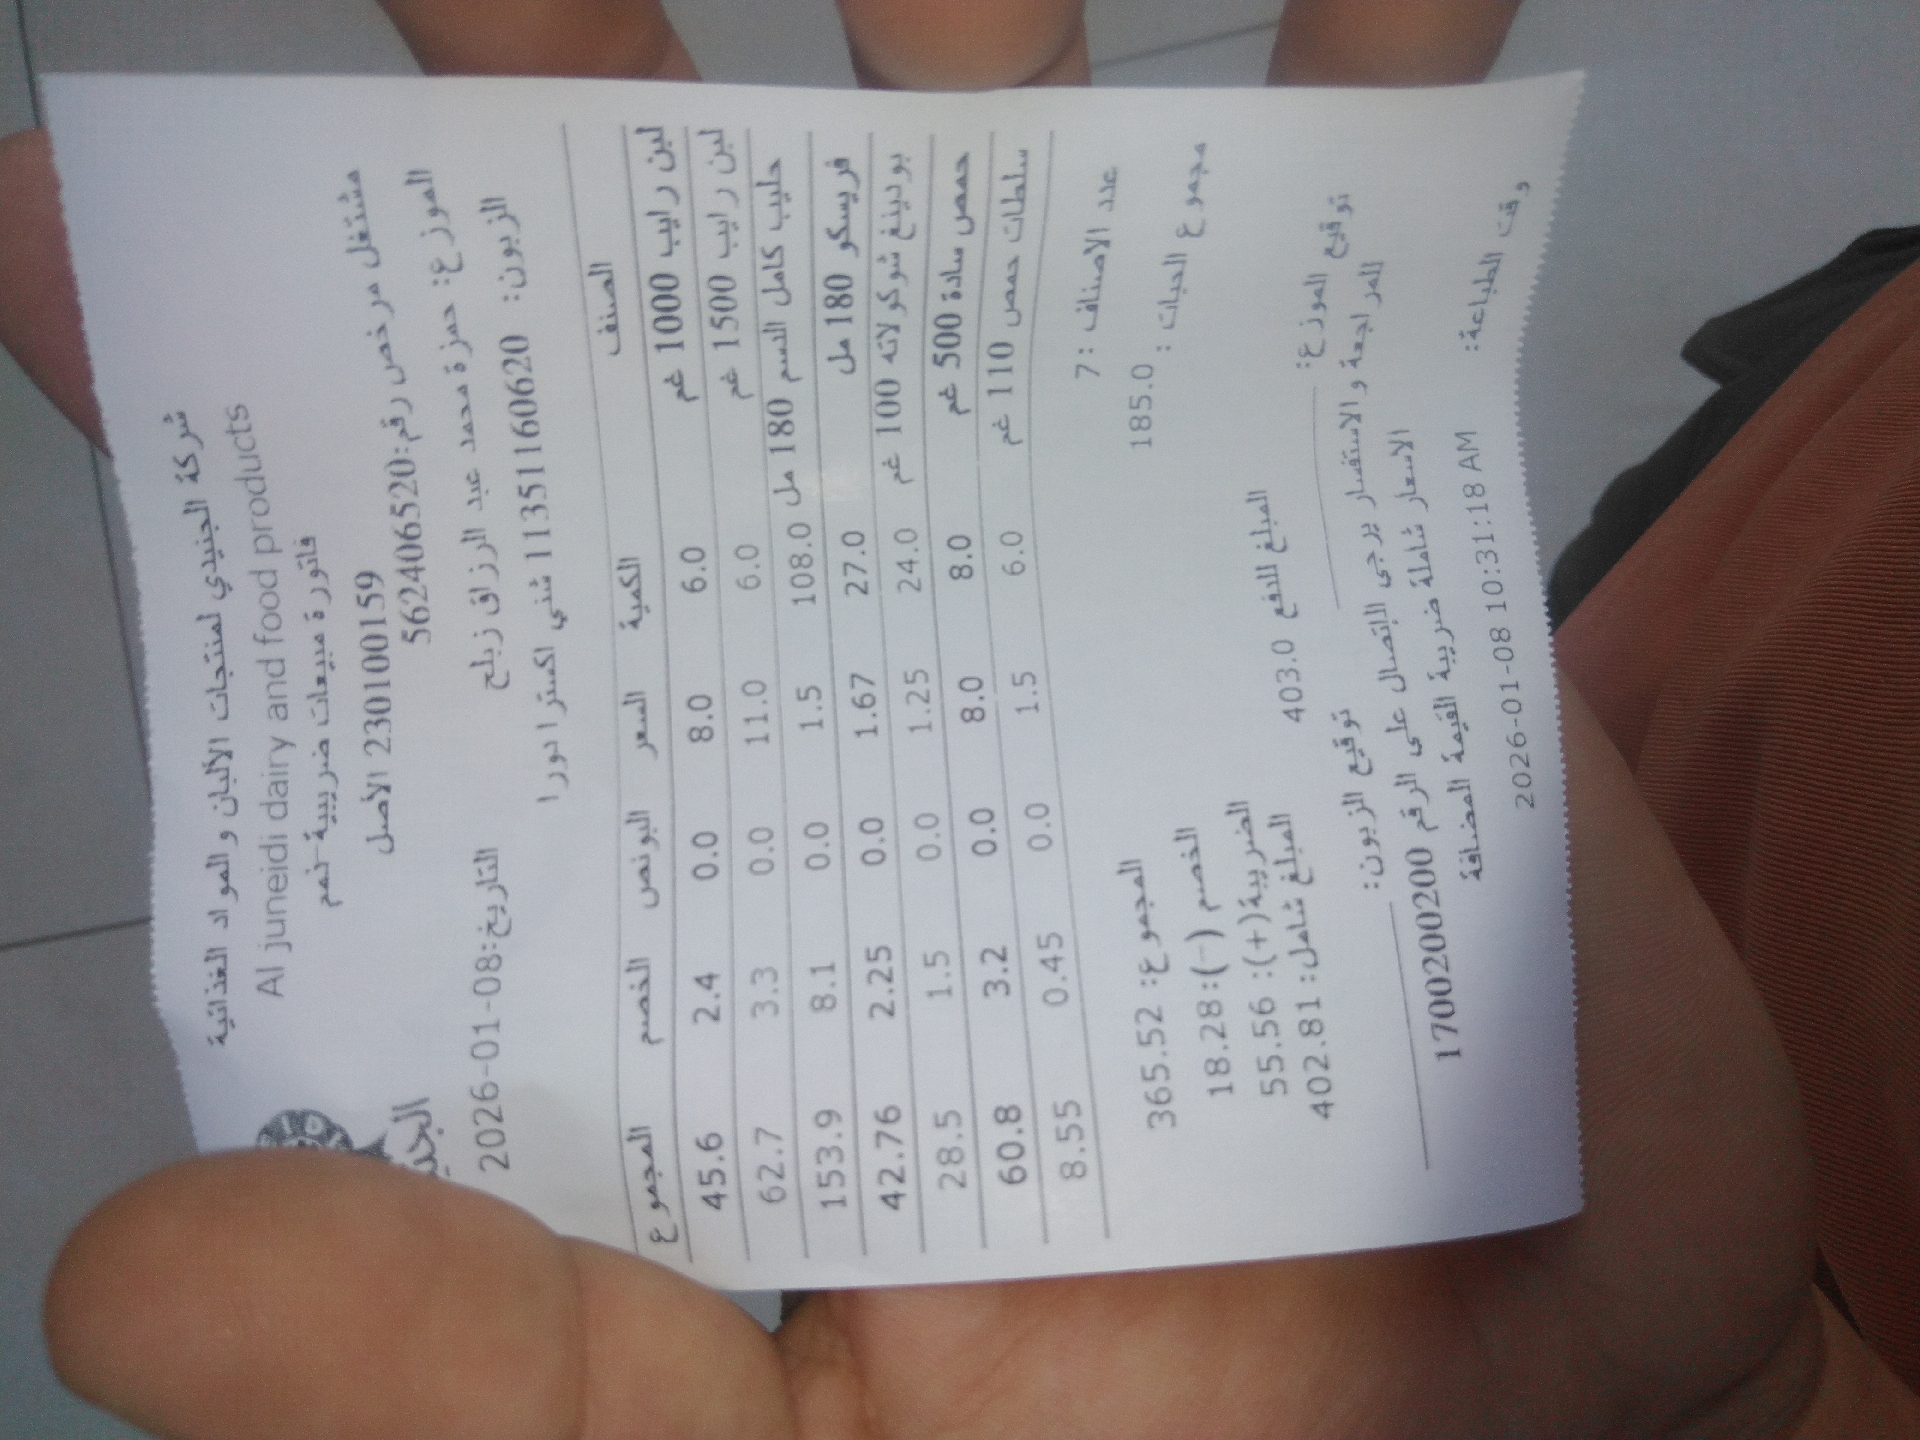 شركة الجنيدي لمنتجات الألبان والمواد الغذائية
Al juneidi dairy and food products
فاتورة مبيعات ضريبية-نمم
2301100159 الأصل
مشتغل مرخص رقم:562406520
الموزع: حمزة محمد عبد الرزاق زبلح
التاريخ:2026-01-08
الزبون: 11351160620 شني اكسترا دورا
الصنف الكمية السعر البونص الخصم المجموع
لبن رايب 1000 غم 6.0 8.0 0.0 2.4 45.6
لبن رايب 1500 غم 6.0 11.0 0.0 3.3 62.7
حليب كامل الدسم 180 مل 108.0 1.5 0.0 8.1 153.9
فريسكو 180 مل 27.0 1.67 0.0 2.25 42.76
بودينغ شوكولاته 100 غم 24.0 1.25 0.0 1.5 28.5
حمص سادة 500 غم 8.0 8.0 0.0 3.2 60.8
سلطات حمص 110 غم 6.0 1.5 0.0 0.45 8.55
عدد الاصناف :7
المجموع: 365.52
مجموع الحبات : 185.0
الخصم (-):18.28
الضريبة(+): 55.56
المبلغ للدفع 403.0
المبلغ شامل: 402.81
توقيع الموزع:
توقيع الزبون:
للمراجعة والاستفسار يرجى الإتصال على الرقم 1700200200
الاسعار شاملة ضريبة القيمة المضافة
وقت الطباعة: 2026-01-08 10:31:18 AM